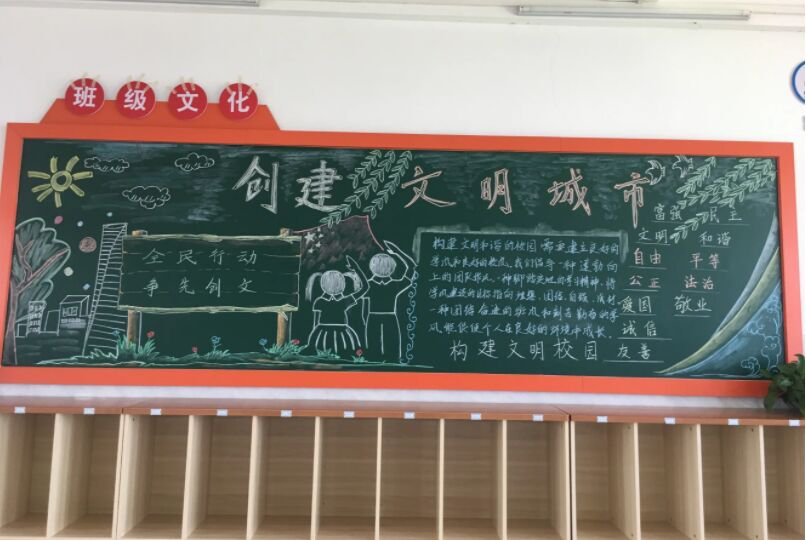 班级文化
创建文明城市
全民行动
争先创文
构建文明和谐的校园,需要建立良好的
学风和良好的校风,我们倡导一种
向
上的团队
一种
的学习精神,将
学风建设的目标指向理想、团结、自强、成材
一种团结奋进的班风和刻苦勤奋的学
风,能促使个人在良好的环境中成长。
构建文明校园
富强 民主
文明 和谐
自由 平等
公正 法治
爱国 敬业
诚信
友善